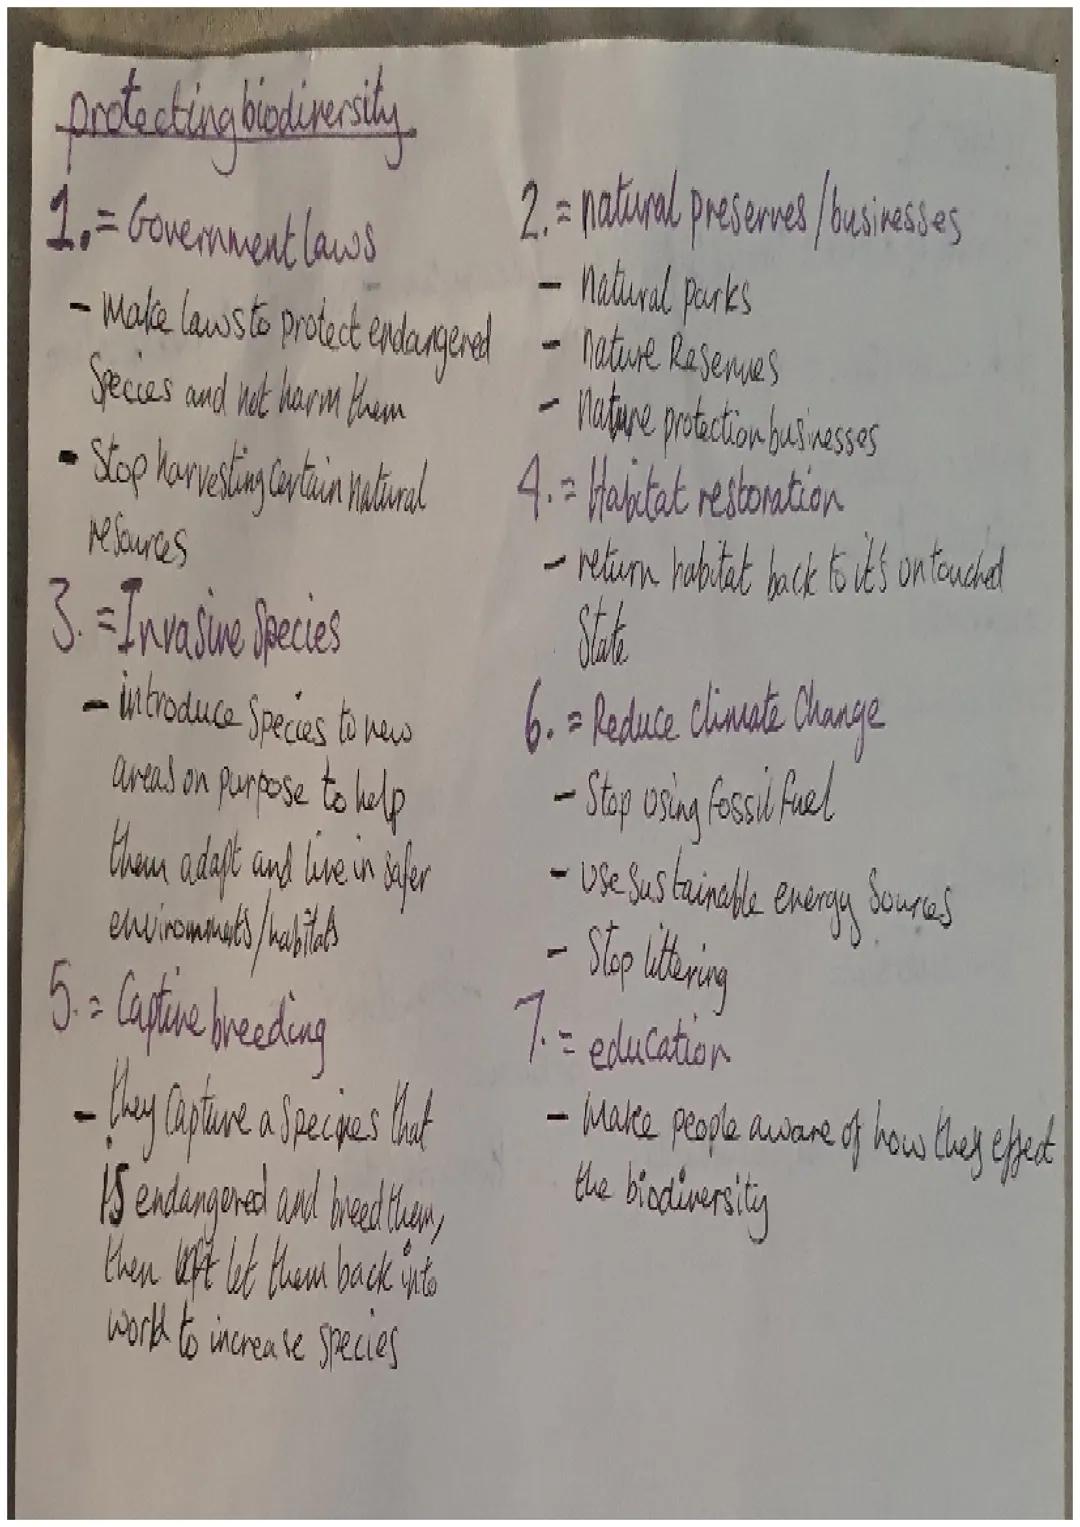 protecting biodiversity
1.= Government laws
- Make laws to protect endangered
Species and not harm them
- Stop harvesting certain natural
resources
2.= natural preserves/businesses
- natural parks
- nature Reserves
- nature protection businesses
3.= Invasive Species
- introduce Species to new
areas on purpose to help
them adapt and live in safer
enviromnets/habitats
4.= Habitat restoration
- return habitat back to it's untouched
State
5.= Captive breeding
- they Capture a Species that
is endangered and breed them,
then let them back into
world to increase species
6.= Reduce climate Change
- Stop using fossil fuel
- use Sustainable energy Sources
- Stop littering
7.= education
- Make people aware of how they effect
the biodiversity